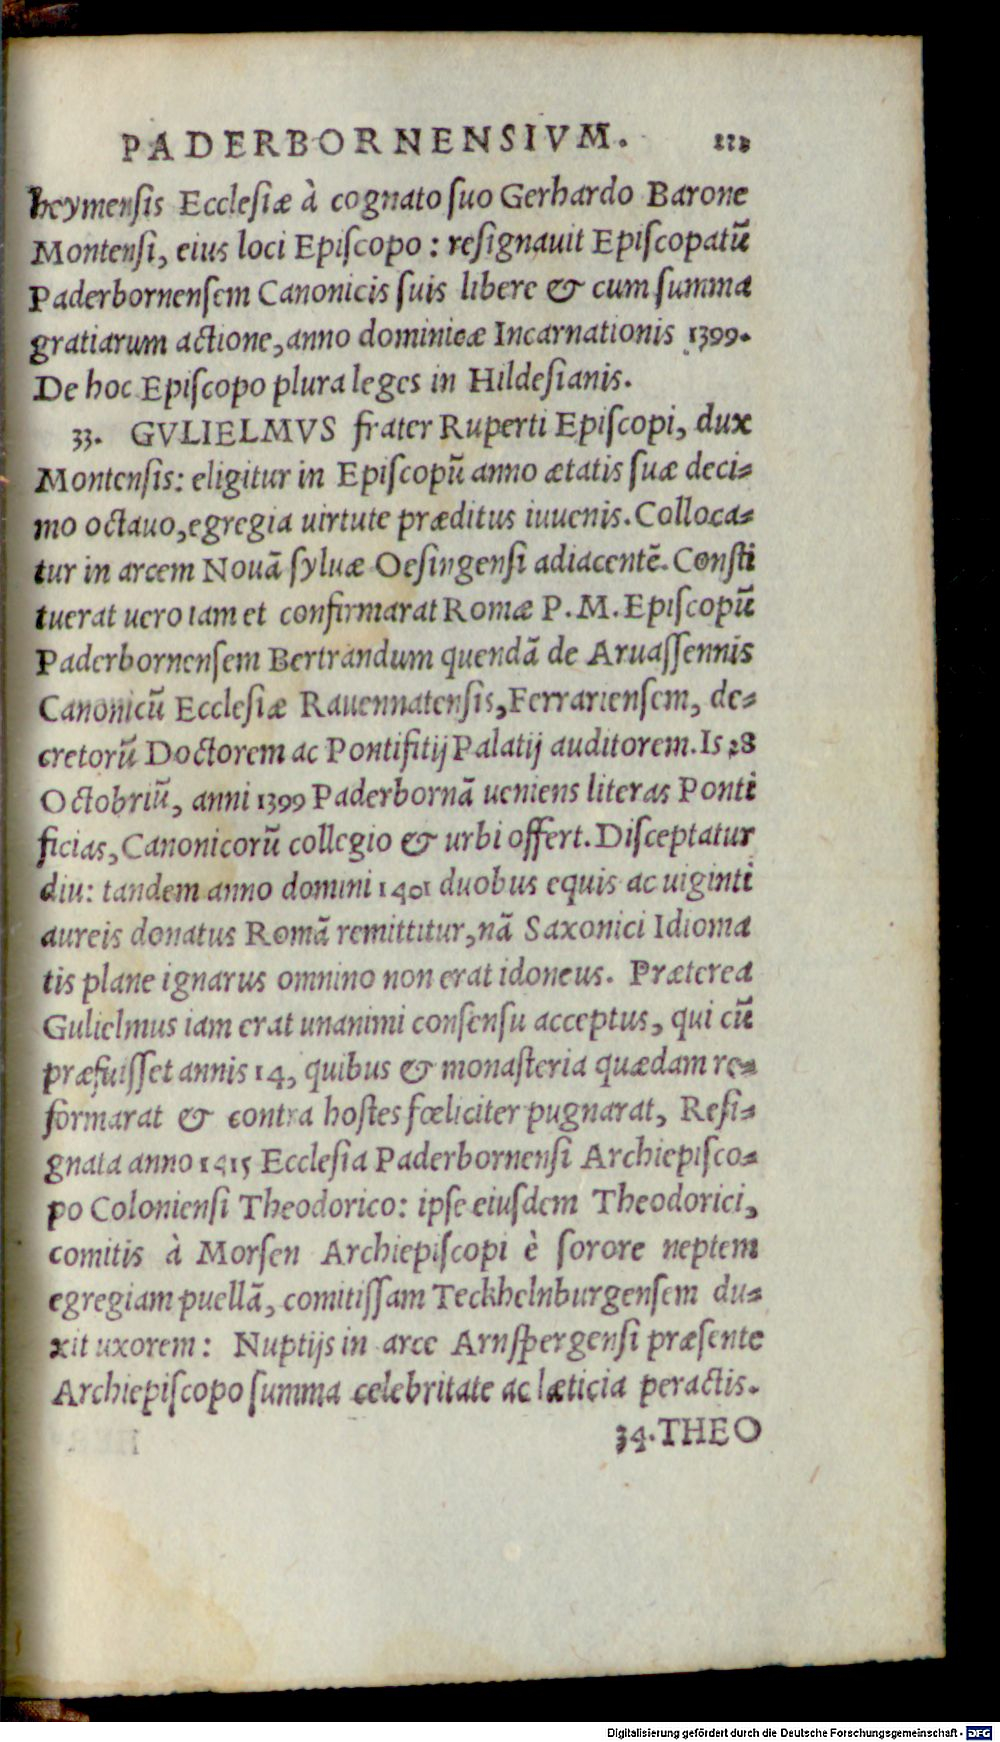 PADERBORNENSIVM.
heymensis Ecclesiæ à cognato suo Gerhardo Barone
Montensi, eius loci Episcopo: resignauit Episcopatū
Paderbornensem Canonicis suis libere & cum summa
gratiarum actione, anno dominicæ Incarnationis 1399.
De hoc Episcopo plura leges in Hildesianis.
33. GVLIELMVS frater Ruperti Episcopi, dux
Montensis: eligitur in Episcopū anno ætatis suæ deci-
mo octauo, egregia uirtute præditus iuuenis. Colloca-
tur in arcem Nouā syluæ Oesingensi adiacentē. Consti
tuerat uero iam et confirmarat Romæ P. M. Episcopū
Paderbornensem Bertrandum quendā de Aruassennis
Canonicū Ecclesiæ Rauennatensis, Ferrariensem, de-
cretorū Doctorem ac Pontifitij Palatij auditorem. Is 28
Octobriū, anni 1399 Paderbornā ueniens literas Ponti
ficias, Canonicorū collegio & urbi offert. Disceptatur
diu: tandem anno domini 1401 duobus equis ac uiginti
aureis donatus Romā remittitur, nā Saxonici Idioma
tis plane ignarus omnino non erat idoneus. Præterea
Gulielmus iam erat unanimi consensu acceptus, qui cū
præfuisset annis 14, quibus & monasteria quædam re-
formarat & contra hostes fœliciter pugnarat, Resi-
gnata anno 1415 Ecclesia Paderbornensi Archiepisco-
po Coloniensi Theodorico: ipse eiusdem Theodorici,
comitis à Morsen Archiepiscopi è sorore neptem
egregiam puellā, comitissam Teckhelnburgensem du-
xit uxorem: Nuptijs in arce Arnspergensi præsente
Archiepiscopo summa celebritate ac læticia peractis.
34. THEO
Digitalisierung gefördert durch die Deutsche Forschungsgemeinschaft - DFG